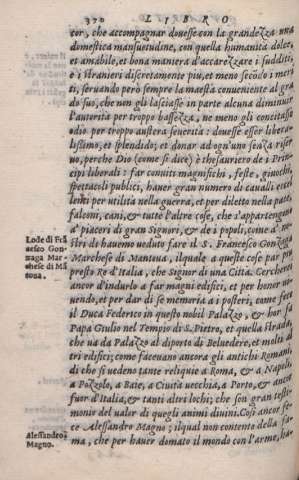 370 LIBRO
cor, che accompagnar douesse con la grandezza una
domestica mansuetudine, con quella humanità dolce,
et amabile, et bona maniera d'accarezzare i sudditi,
e i stranieri discretamente piu, et meno secōdo i meri
ti, seruando però sempre la maestà conueniente al gra
do suo, che non gli lasciasse in parte alcuna diminuir
l'autorità per troppo bassezza, ne meno gli concitasse
odio per troppo austera seuerità: douesse esser liberalissimo,
lissimo, et splendido; et donar ad ogn'un senza riser
uo, perche Dio (come si dice) è thesauriero de i Prin
cipi liberali: far conuiti magnifichi, feste, giuochi,
spettacoli publici, hauer gran numero di caualli eccel
lenti per utilità nella guerra, et per diletto nella pace,
falconi, cani, & tutte l'altre cose, che s'appartengono
a' piaceri di gran Signori, & de i popoli, come a' no
stri dì hauemo ueduto fare il S. Francesco Gonzaga
Marchese di Mantoua, ilquale a queste cose par piu
presto Re d'Italia, che Signor di una Città. Cercherei
ancor d'indurlo a far magni edifici, et per honor ui
uendo, et per dar di se memoria a i posteri, come fece
il Duca Federico in questo nobil Palazzo, & hor fa
Papa Giulio nel Tempio di S. Pietro, et quella strada,
che ua da Palazzo al diporto di Beluedere, et molti al
tri edifici; come faceuano ancora gli antichi Romani,
di che si uedeno tante reliquie a Roma, & a Napoli,
a Pozzolo, a Baie, a Ciuità uecchia, a Porto, & ancor
fuor d'Italia, & tanti altri lochi; che son gran testi-
monio del ualor di quegli animi diuini. Così ancor fe-
ce Alessandro Magno; ilqual non contento della fa-
ma, che per hauer domato il mondo con l'arme, ha-
Lode di Frā
cesco Gon
zaga Mar-
chese di Mā
toua.
Alessandro
Magno.